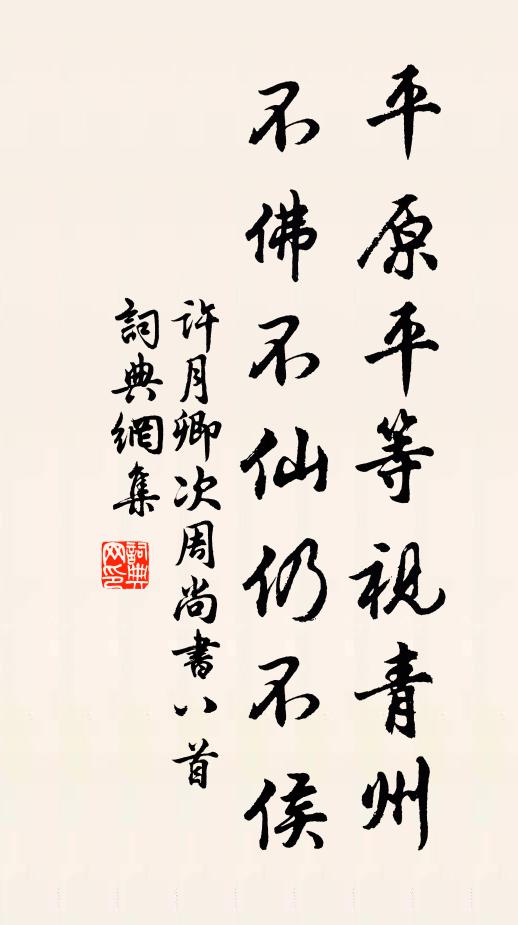 平原平等視青州
不佛不仙仍不侯
許月卿次周尚書八首
詞典網集
詞典网印